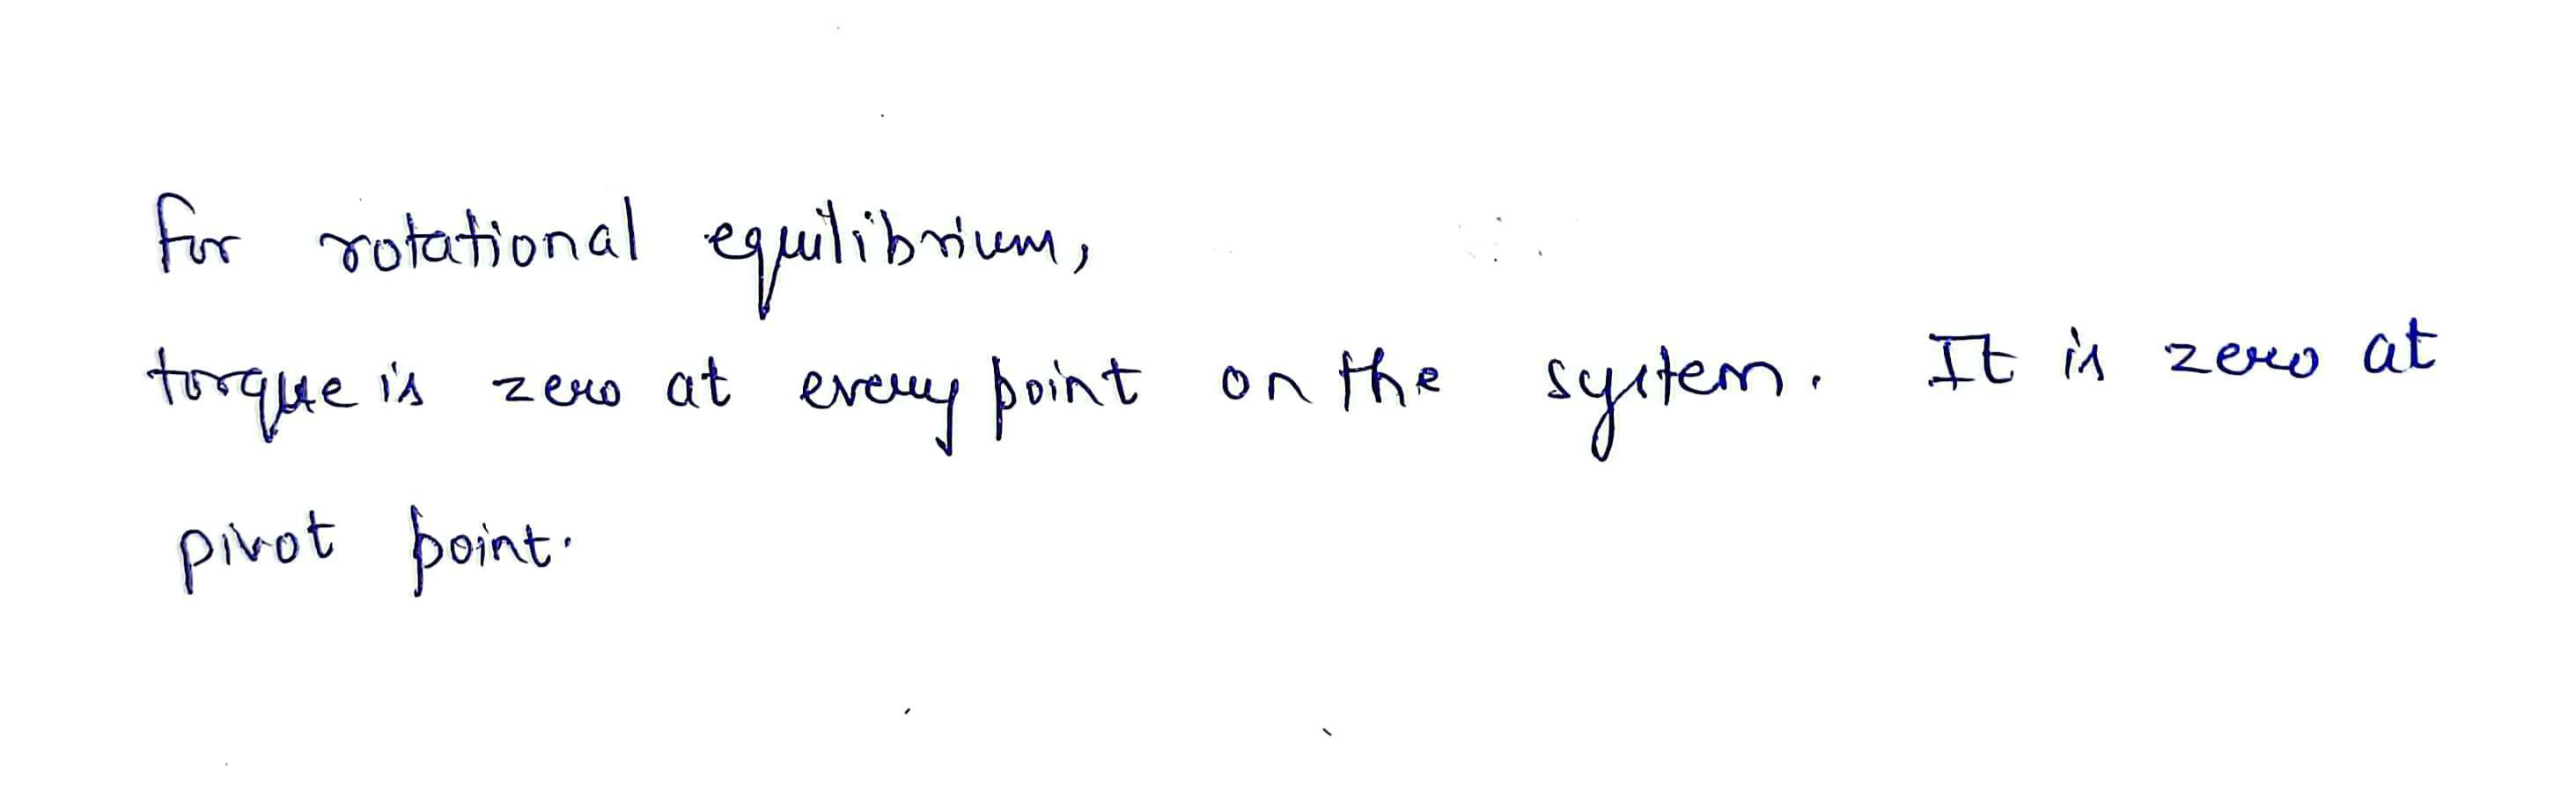 for rotational equilibrium,
torque is zero at every point on the system. It is zero at
pivot point.